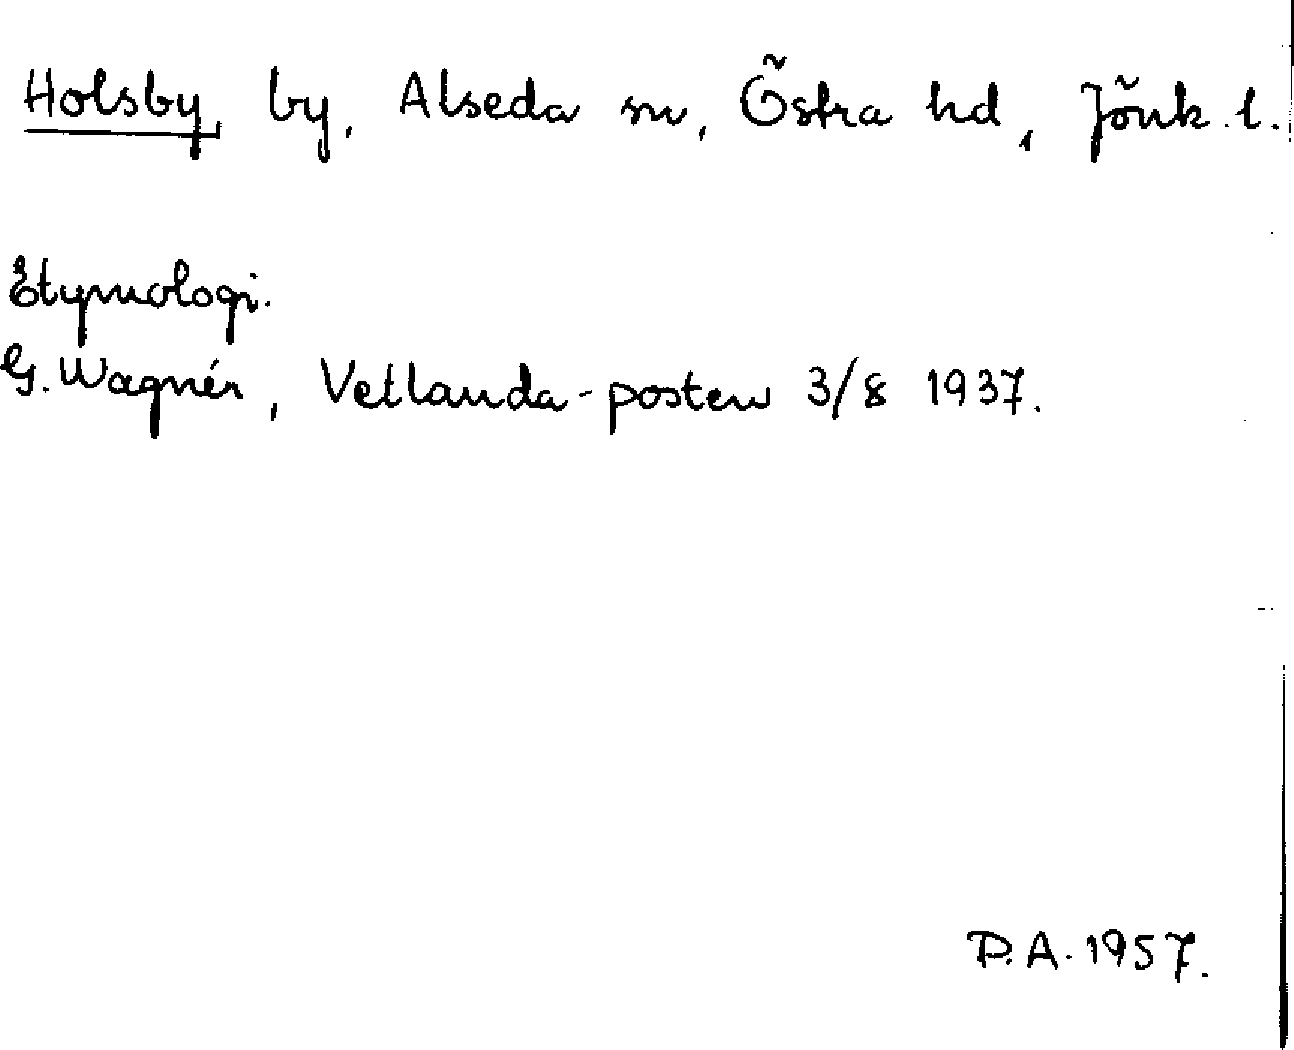 Holsby, by, Alseda sn, Östra hd, Jönk. l.
Etymologi.
G. Wagnér, Vetlanda-posten 3/8 1937.
P.A. 1957.